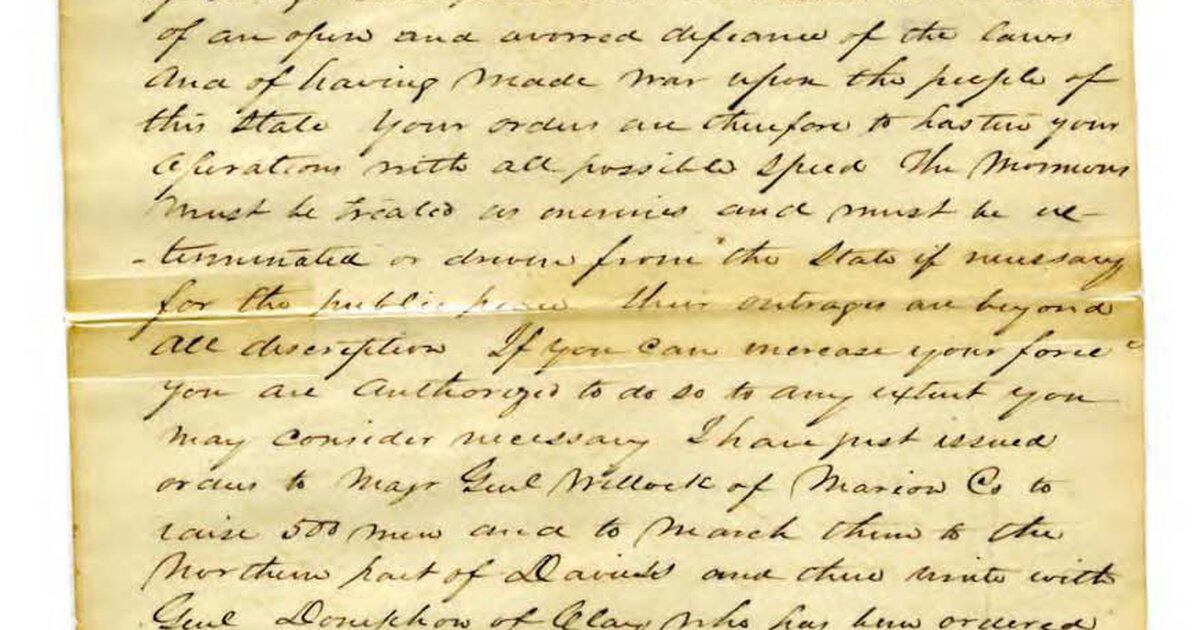 of an open and avowed defiance of the laws
And of having made war upon the people of
this State Your orders are therefore to hasten your
Operations with all possible speed The Mormons
Must be treated as enemies and must be ex-
-terminated or driven from the State if necessary
for the public peace their outrages are beyond
All discription If you can increase your force
you are Authorized to do so to any extent you
may consider necessary I have just issued
orders to Majr Genl Willock of Marion Co to
raise 500 men and to March them to the
Northern part of Daviess and there unite with
Genl Doniphon of Clay who has been ordered